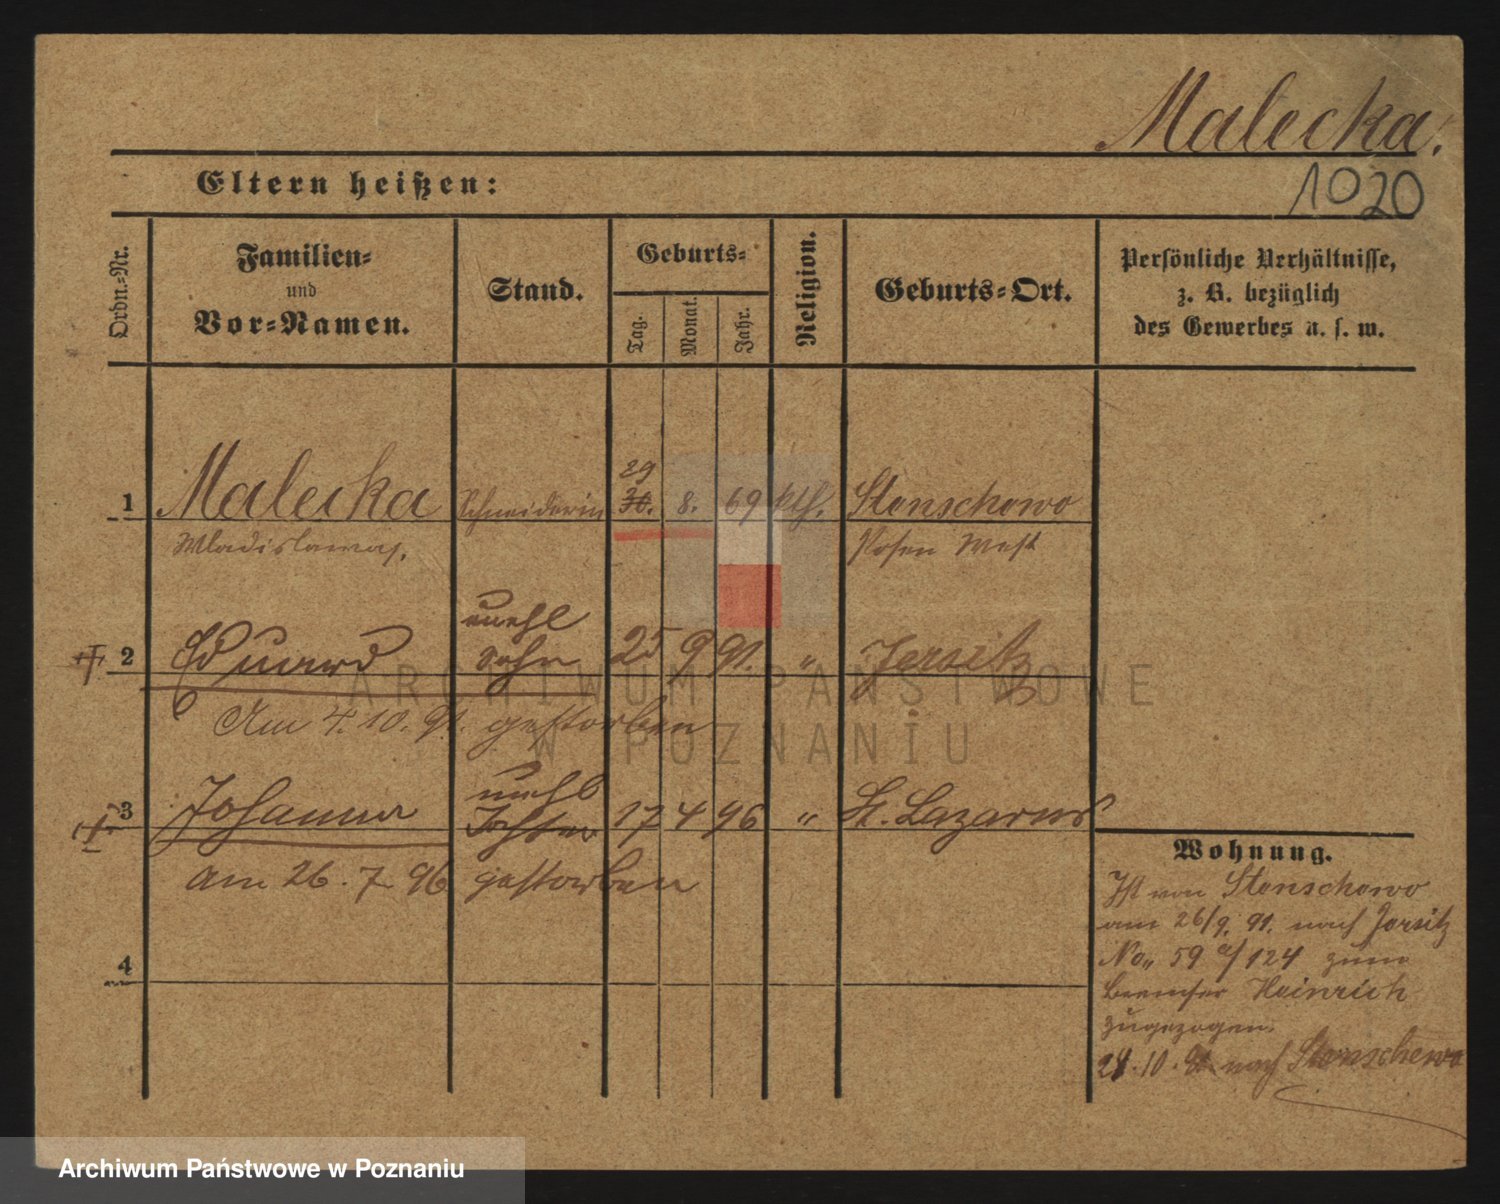 Malecka.
1020
Eltern heißen:
Ordn.-Nr.
Familien-
und
Vor-Namen.
Stand.
Geburts-
Tag.
Monat.
Jahr.
Religion.
Geburts-Ort.
Persönliche Verhältnisse,
z. B. bezüglich
des Gewerbes u. s. w.
29
1 Malecka Schneiderin 30. 8. 69 kth. Stenschewo
Wladislawa, Posen West
unehl
2 Eduard Sohn 25 9 91. " Jersitz
Am 4. 10. 91. gestorben
unehl
3 Johanna Tochter 17 4 96 " St. Lazarus
am 26. 7. 96 gestorben
4
Wohnung.
Ist von Stenschewo
am 26/9. 91. nach Jersitz
No„ 59 a/124 zum
Heinrich
zugezogen.
10. nach Stenschewo
ARCHIWUM PAŃSTWOWE
W POZNANIU
Archiwum Państwowe w Poznaniu